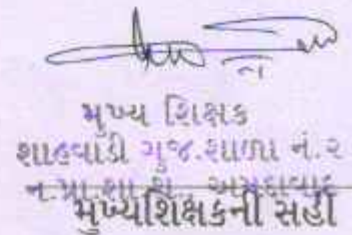 મુખ્ય શિક્ષક
શાહવાડી ગુજ.શાળા નં.૨
ન.પ્રા.શા.શિ. અમદાવાદ
મુખ્યશિક્ષકની સહી